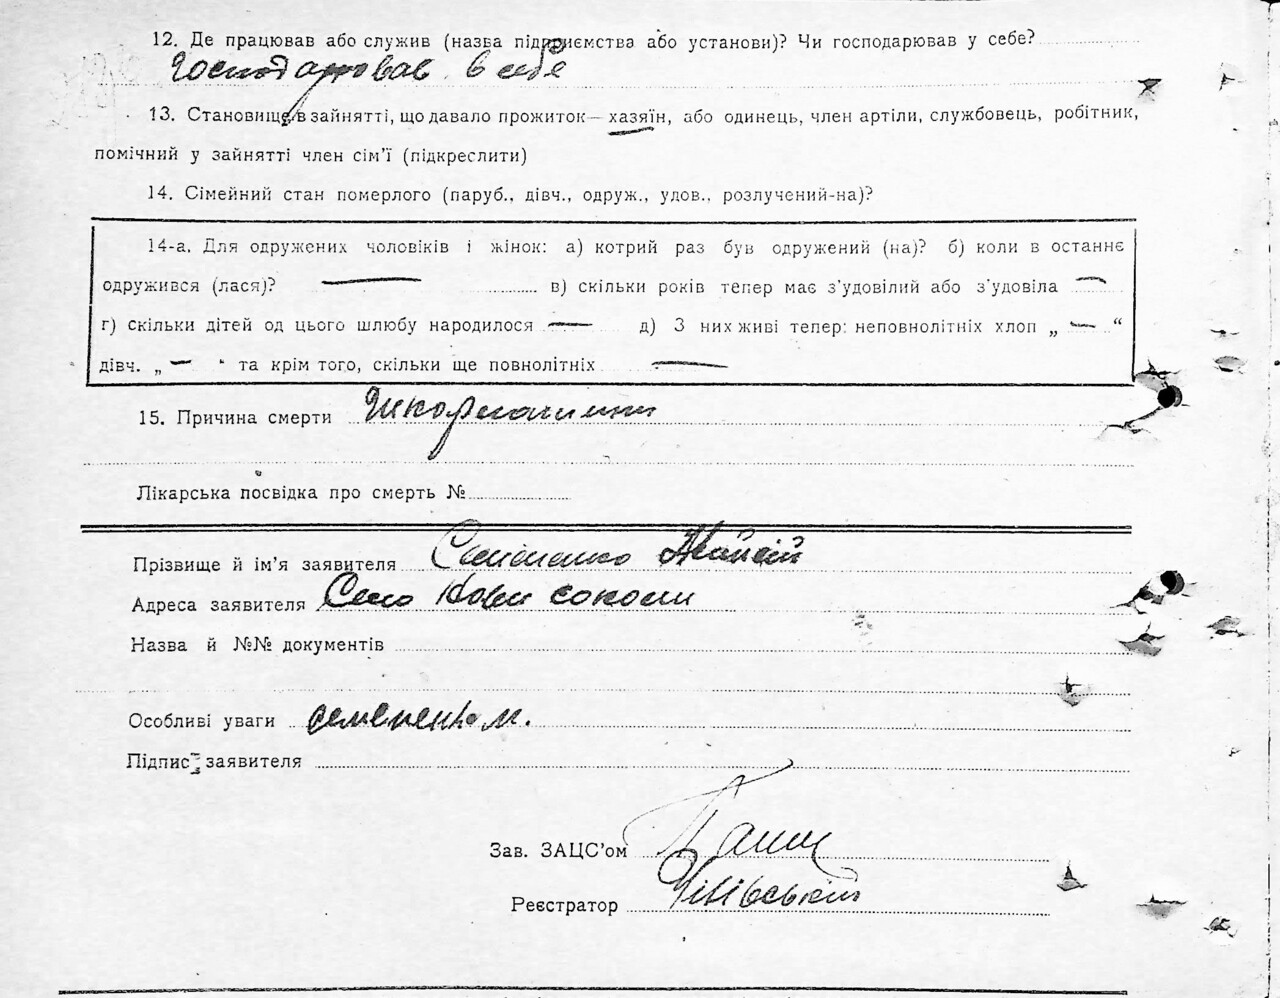 12. Де працював або служив (назва підприємства або установи)? Чи господарював у себе?
Господарював в себе
13. Становище в зайнятті, що давало прожиток—хазяїн, або одинець, член артіли, службовець, робітник,
помічний у зайнятті член сім'ї (підкреслити)
14. Сімейний стан померлого (паруб., дівч., одруж., удов., розлучений-на)?
14-а. Для одружених чоловіків і жінок: а) котрий раз був одружений (на)? б) коли в останнє
одружився (лася)? — в) скільки років тепер має з'удовілий або з'удовіла —
г) скільки дітей од цього шлюбу народилося — д) З них живі тепер: неповнолітніх хлоп „ — “
дівч. „ — “ та крім того, скільки ще повнолітніх —
15. Причина смерти
Лікарська посвідка про смерть №
Прізвище й ім'я заявителя
Адреса заявителя Село Нови соколи
Назва й №№ документів
Особливі уваги семененко м.
Підпис заявителя
Зав. ЗАЦС'ом
Реєстратор